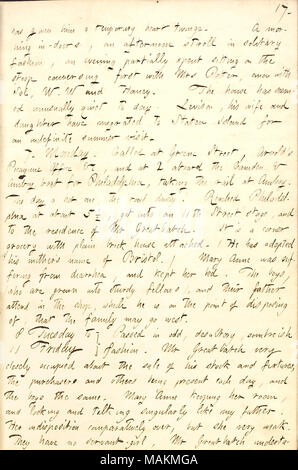 17.
has given him a temporary heart twinge. A mor-
ning in-doors, an afternoon stroll in solitary
fashion, an evening partially spent sitting on the
stoop conversing first with Mrs Potter, anon with
Sol, W. W. and Nancy. The house has seem-
ed unusually quiet to day. Levison, his wife and
daughter have emigrated to Staten Island for
an indefinite summer visit.
7. Monday. Called at Green Street, Arnold's
Picayune Office &c, and at 2 aboard the Camden &
Amboy boat for Philadelphia, taking the rail at Amboy.
The day a hot one, the road dusty. Reached Philadel-
phia at about 5 ½, got into an 11th Street stage, and
to the residence of Mr Greatbatch. It is a corner
grocery with plain brick house attached. (He has adopted
his mother's name of Bristol.) Mary Anne was suf-
fering from diarrhea and kept her bed. The boys,
who are grown into sturdy fellows, and their father
attend in the shop, while he is on the point of disposing
of that the family may go west.
8 Tuesday to } Passed in odd, desultory, somberish
11 Friday } fashion. Mr Greatbatch very
closely occupied about the sale of his stock and fixtures,
the purchasers and others being present each day, and
the boys the same. Mary Anne keeping her room,
and looking and talking singularly like my father.
Her indisposition comparatively over, but she very weak.
They have no servant-girl, Mr Greatbatch underta-
alamy
Image ID: MAKMGA
www.alamy.com